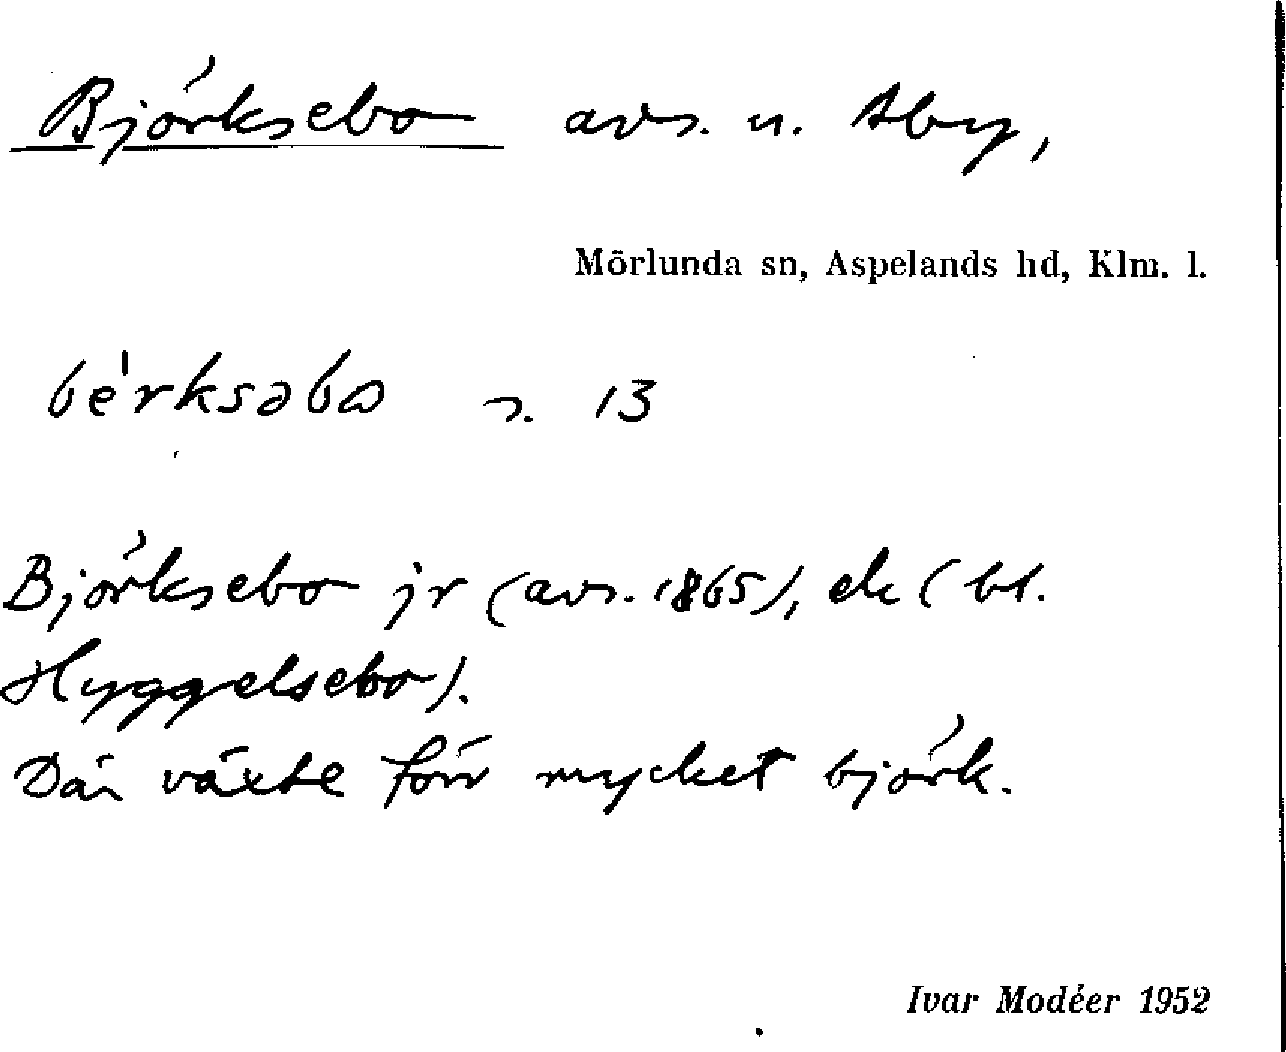 Björksebo avs. u. Åby,
Mörlunda sn, Aspelands hd, Klm. l.
bérksəbω s. 13
Björksebo jr (avs. 1865), ek (bl.
Hyggelsebo).
Där växte förr mycket björk.
Ivar Modéer 1952